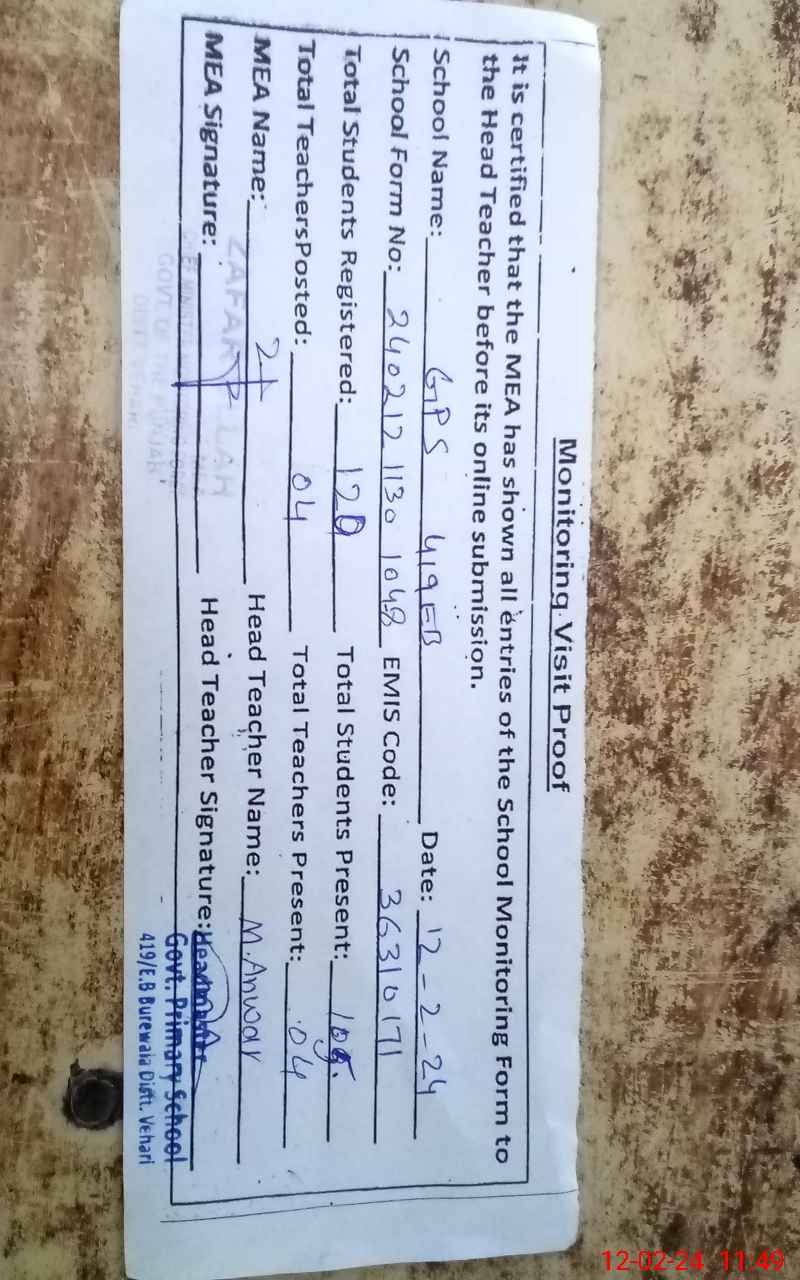 Monitoring Visit Proof
It is certified that the MEA has shown all entries of the School Monitoring Form to
the Head Teacher before its online submission.
School Name: GPS 419 EB Date: 12-2-24
School Form No: 240212 1130 1048 EMIS Code: 36310171
Total Students Registered: 120 Total Students Present:
Total TeachersPosted: 04 Total Teachers Present: 04
MEA Name: 21 Head Teacher Name: M. Anwar
MEA Signature: Head Teacher Signature: Headmaster
Govt. Primary School
419/E.B Burewala Distt. Vehari
ZAFAR
GOVT OF THE PUNJAB
12-02-24 11:49